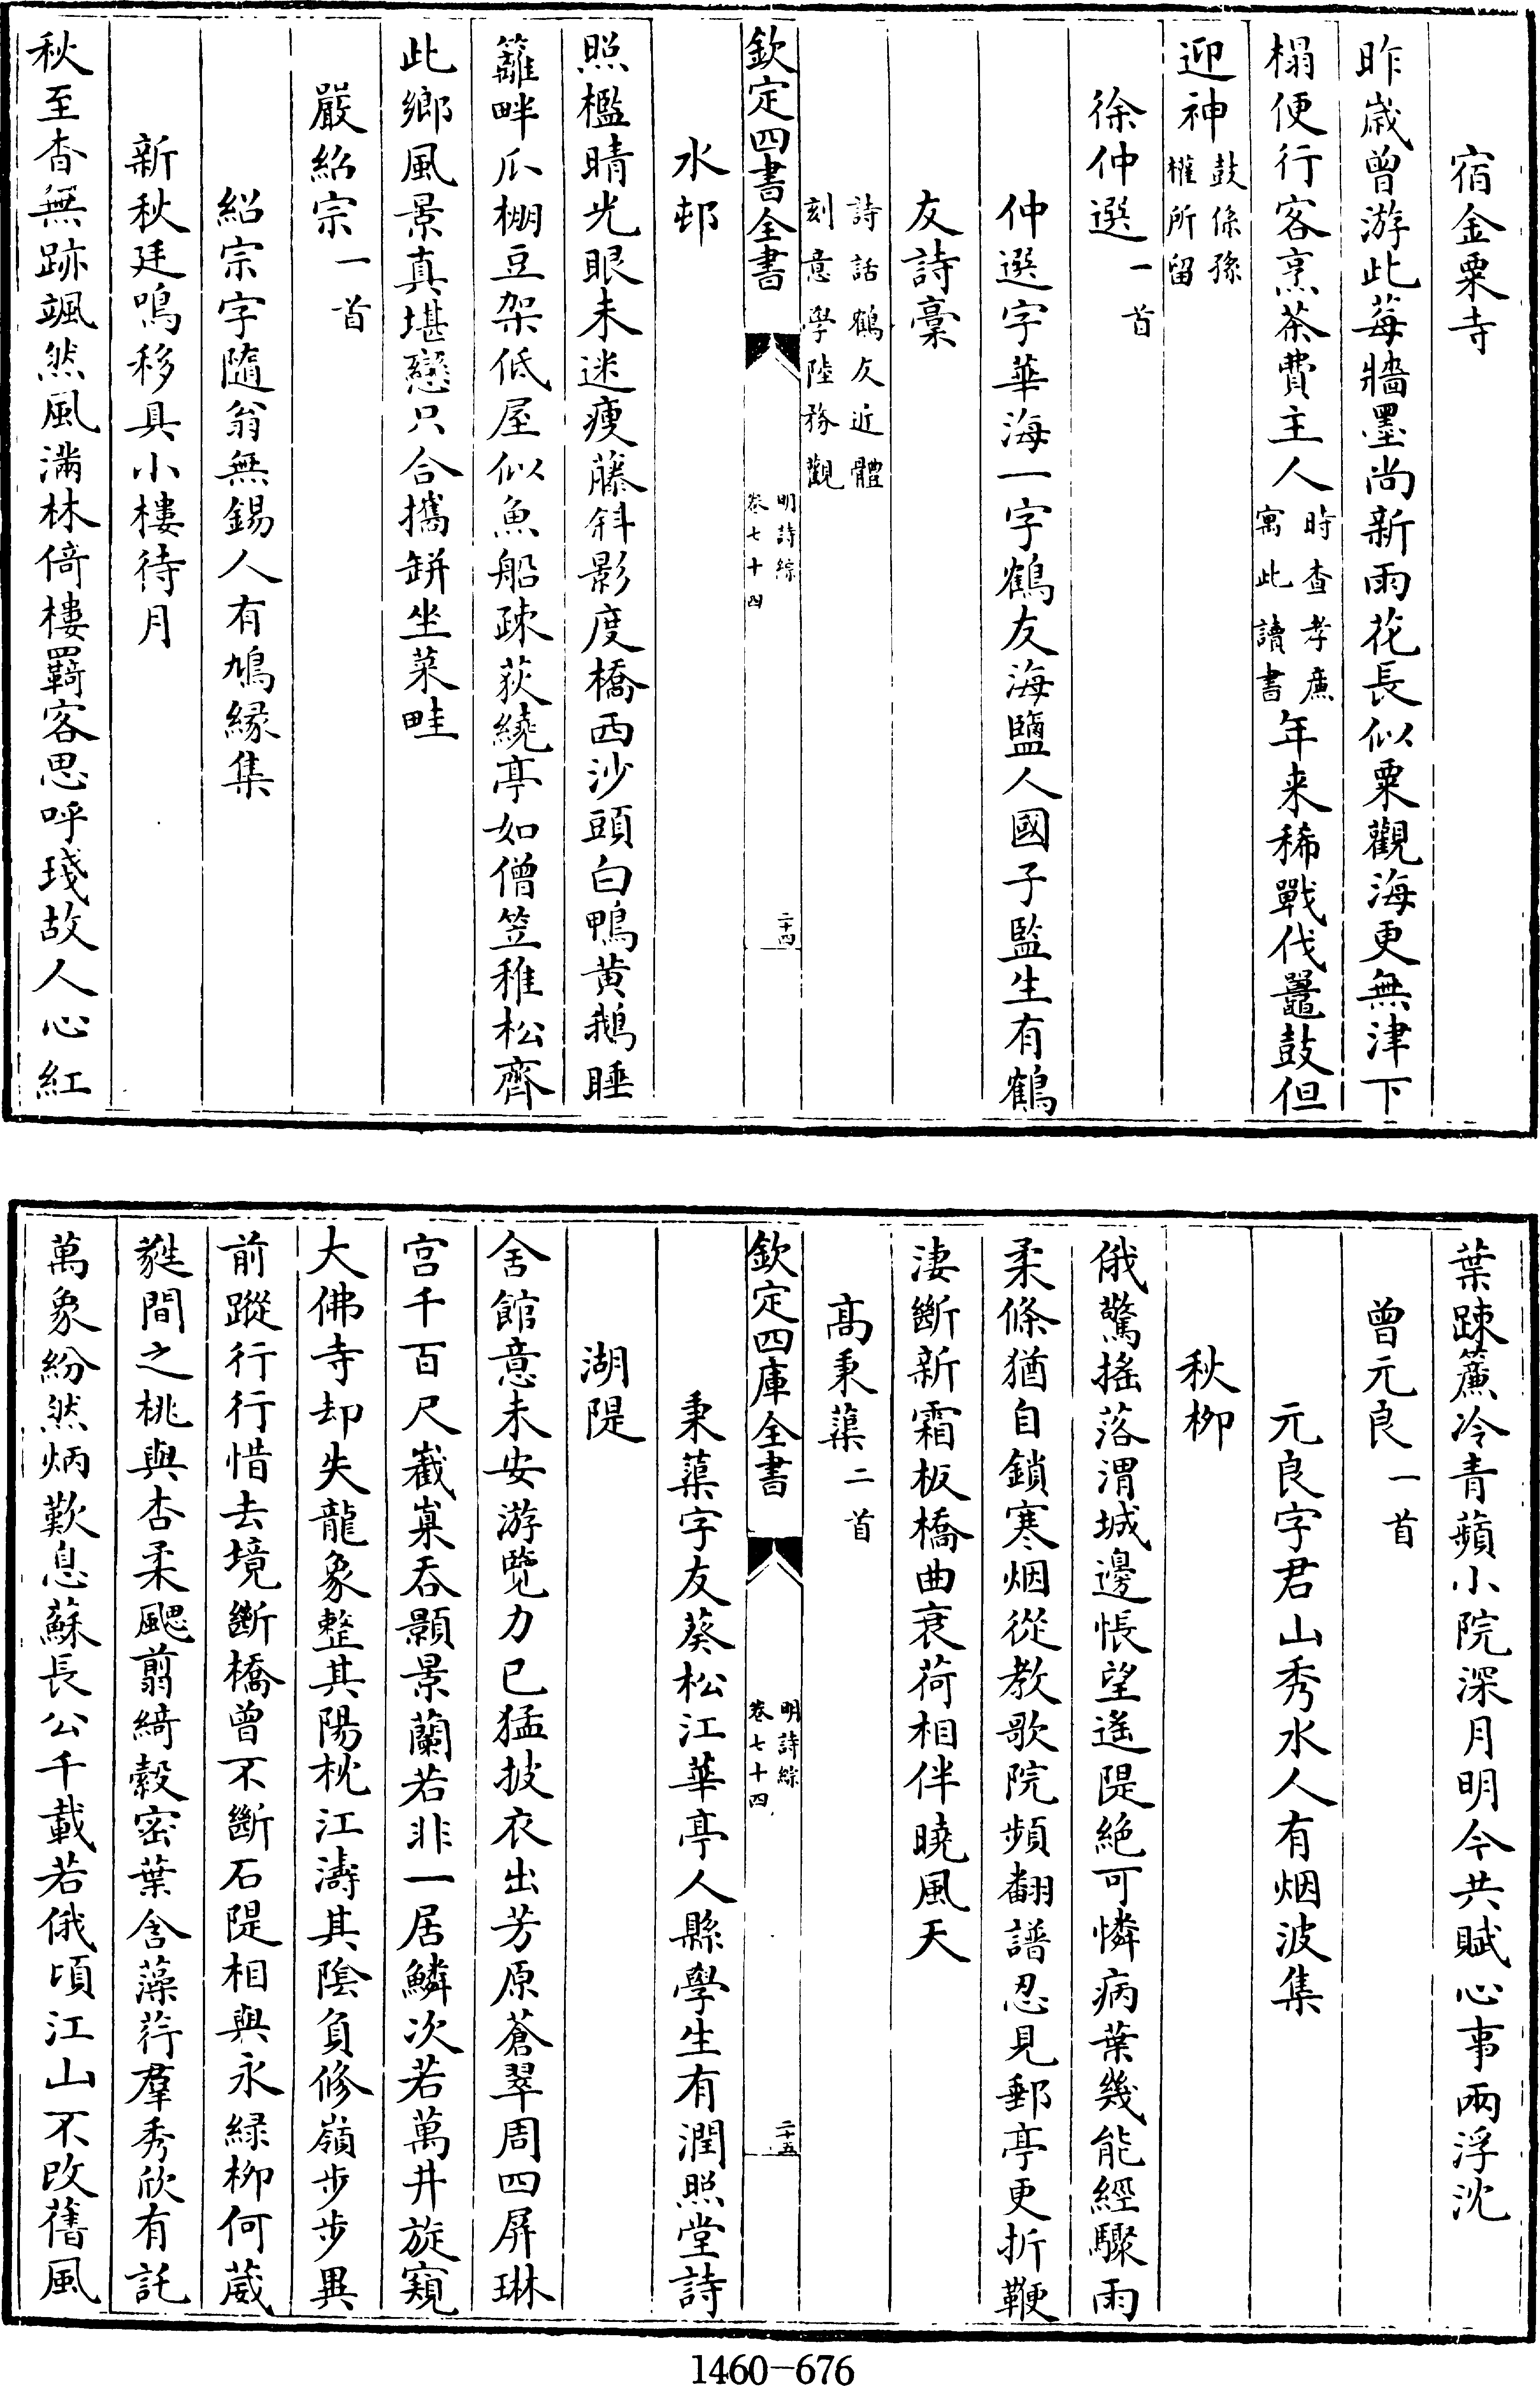 宿金粟寺
昨歲曾游此莓牆墨尚新雨花長似粟觀海更無津下
榻便行客烹茶費主人時查孝廉寓此讀書年来稀戰伐鼉鼓但
迎神鼓係孫權所留
徐仲選一首
仲選字華海一字鶴友海鹽人國子監生有鶴
友詩稾
詩話鶴友近體刻意學陸務觀
欽定四書全書 明詩綜卷七十四 二十四
水邨
照檻晴光眼未迷瘦藤斜影度橋西沙頭白鴨黄鵝睡
籬畔瓜棚豆架低屋似魚船疎荻繞亭如僧笠稚松齊
此鄉風景真堪戀只合攜缾坐菜畦
嚴紹宗一首
紹宗字隨翁無錫人有鳩緣集
新秋廷鳴移具小樓待月
秋至杳無跡颯然風滿林倚樓羇客思呼琖故人心紅
葉踈簾冷青蘋小院深月明今共賦心事兩浮沈
曾元良一首
元良字君山秀水人有烟波集
秋栁
俄驚搖落渭城邊悵望遙隄絶可憐病葉幾能經驟雨
柔條猶自鎖寒烟從教歌院頻翻譜忍見郵亭更折鞭
淒斷新霜板橋曲衰荷相伴曉風天
高秉蕖二首
欽定四庫全書 明詩綜卷七十四 二十五
秉蕖字友葵松江華亭人縣學生有潤照堂詩
湖隄
舍館意未安游覽力已猛披衣出芳原蒼翠周四屏琳
宮千百尺巀嶪吞顥景蘭若非一居鱗次若萬井旋窺
大佛寺却失龍象整其陽枕江濤其陰負修嶺步步異
前蹤行行惜去境斷橋曾不斷石隄相與永緑栁何葳
蕤間之桃與杏柔颸翦綺縠密葉含藻荇羣秀欣有託
萬象紛然炳歎息蘇長公千載若俄頃江山不改舊風
1460—676